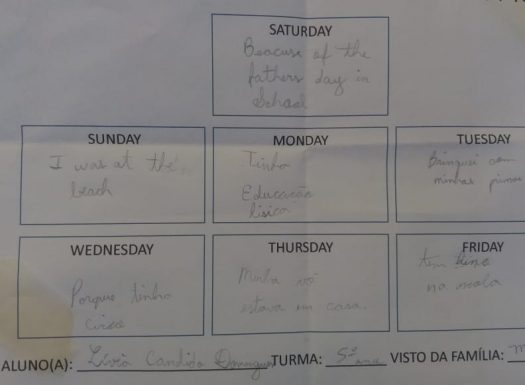 SATURDAY
Beacuse of the
fathers day in
School
SUNDAY
I was at the
beach
MONDAY
Tinha
Educação
fisica
TUESDAY
Brinquei com
minhas primas
WEDNESDAY
Porque tinha
circo
THURSDAY
Minha vó
estava em casa.
FRIDAY
tem
na escola
ALUNO(A): Lívia Candido Domingues TURMA: 5º ano VISTO DA FAMÍLIA: